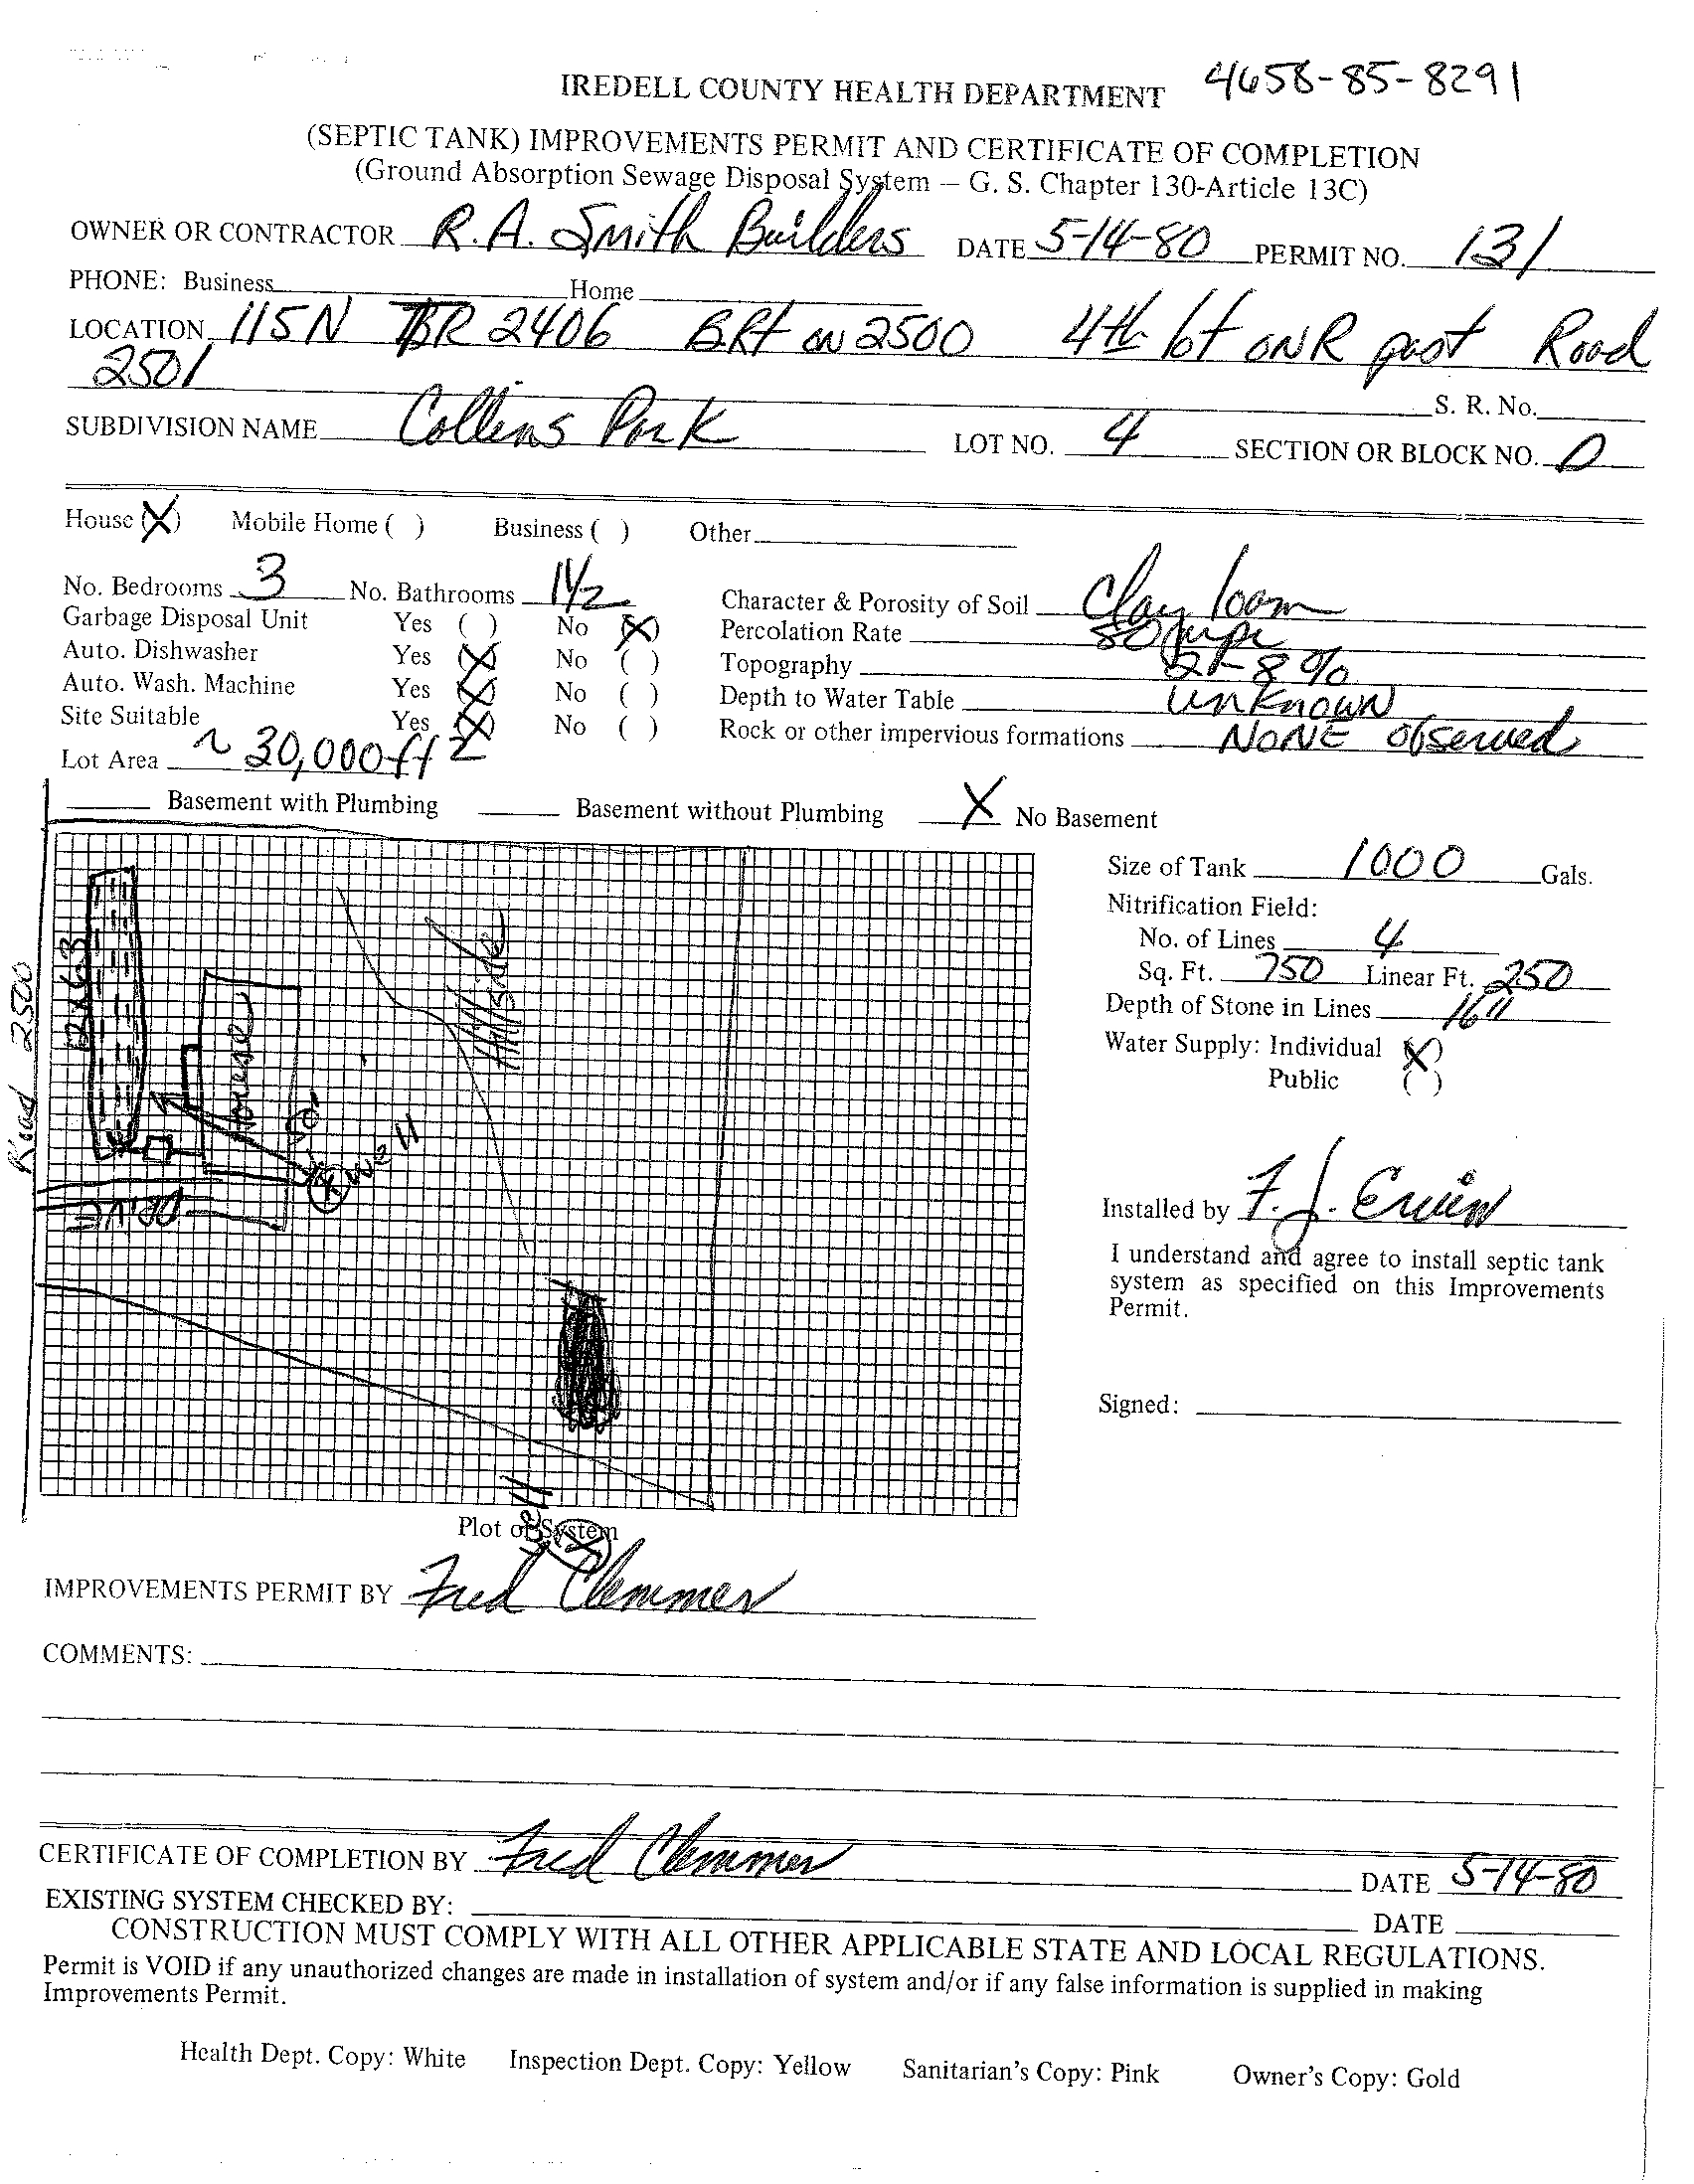 IREDELL COUNTY HEALTH DEPARTMENT 4658-85-8291
(SEPTIC TANK) IMPROVEMENTS PERMIT AND CERTIFICATE OF COMPLETION
(Ground Absorption Sewage Disposal System – G. S. Chapter 130-Article 13C)
OWNER OR CONTRACTOR R.A. Smith Builders DATE 5-14-80 PERMIT NO. 131
PHONE: Business Home
LOCATION 115N BR 2406 BRt on 2500 4th lot ON R past Road
2501
S. R. No.
SUBDIVISION NAME Collins Park LOT NO. 4 SECTION OR BLOCK NO. D
House (X) Mobile Home ( ) Business ( ) Other
No. Bedrooms 3 No. Bathrooms 1 1/2 Character & Porosity of Soil Clay loam
Garbage Disposal Unit Yes ( ) No (X) Percolation Rate 80 mpi
Auto. Dishwasher Yes (X) No ( ) Topography 2-8%
Auto. Wash. Machine Yes (X) No ( ) Depth to Water Table unKnowN
Site Suitable Yes (X) No ( ) Rock or other impervious formations NONE observed
Lot Area ~ 30,000 ft 2
Basement with Plumbing Basement without Plumbing X No Basement
Size of Tank 1000 Gals.
Nitrification Field:
No. of Lines 4
Sq. Ft. 750 Linear Ft. 250
Depth of Stone in Lines 16"
Water Supply: Individual (X)
Public ( )
Road 2500
House
Hillside
50'
X well
DRIVE
Installed by F. J. Erwin
I understand and agree to install septic tank
system as specified on this Improvements
Permit.
Signed:
well X
Plot of System
IMPROVEMENTS PERMIT BY Fred Clemmer
COMMENTS:
CERTIFICATE OF COMPLETION BY Fred Clemmer DATE 5-14-80
EXISTING SYSTEM CHECKED BY: DATE
CONSTRUCTION MUST COMPLY WITH ALL OTHER APPLICABLE STATE AND LOCAL REGULATIONS.
Permit is VOID if any unauthorized changes are made in installation of system and/or if any false information is supplied in making
Improvements Permit.
Health Dept. Copy: White Inspection Dept. Copy: Yellow Sanitarian's Copy: Pink Owner's Copy: Gold